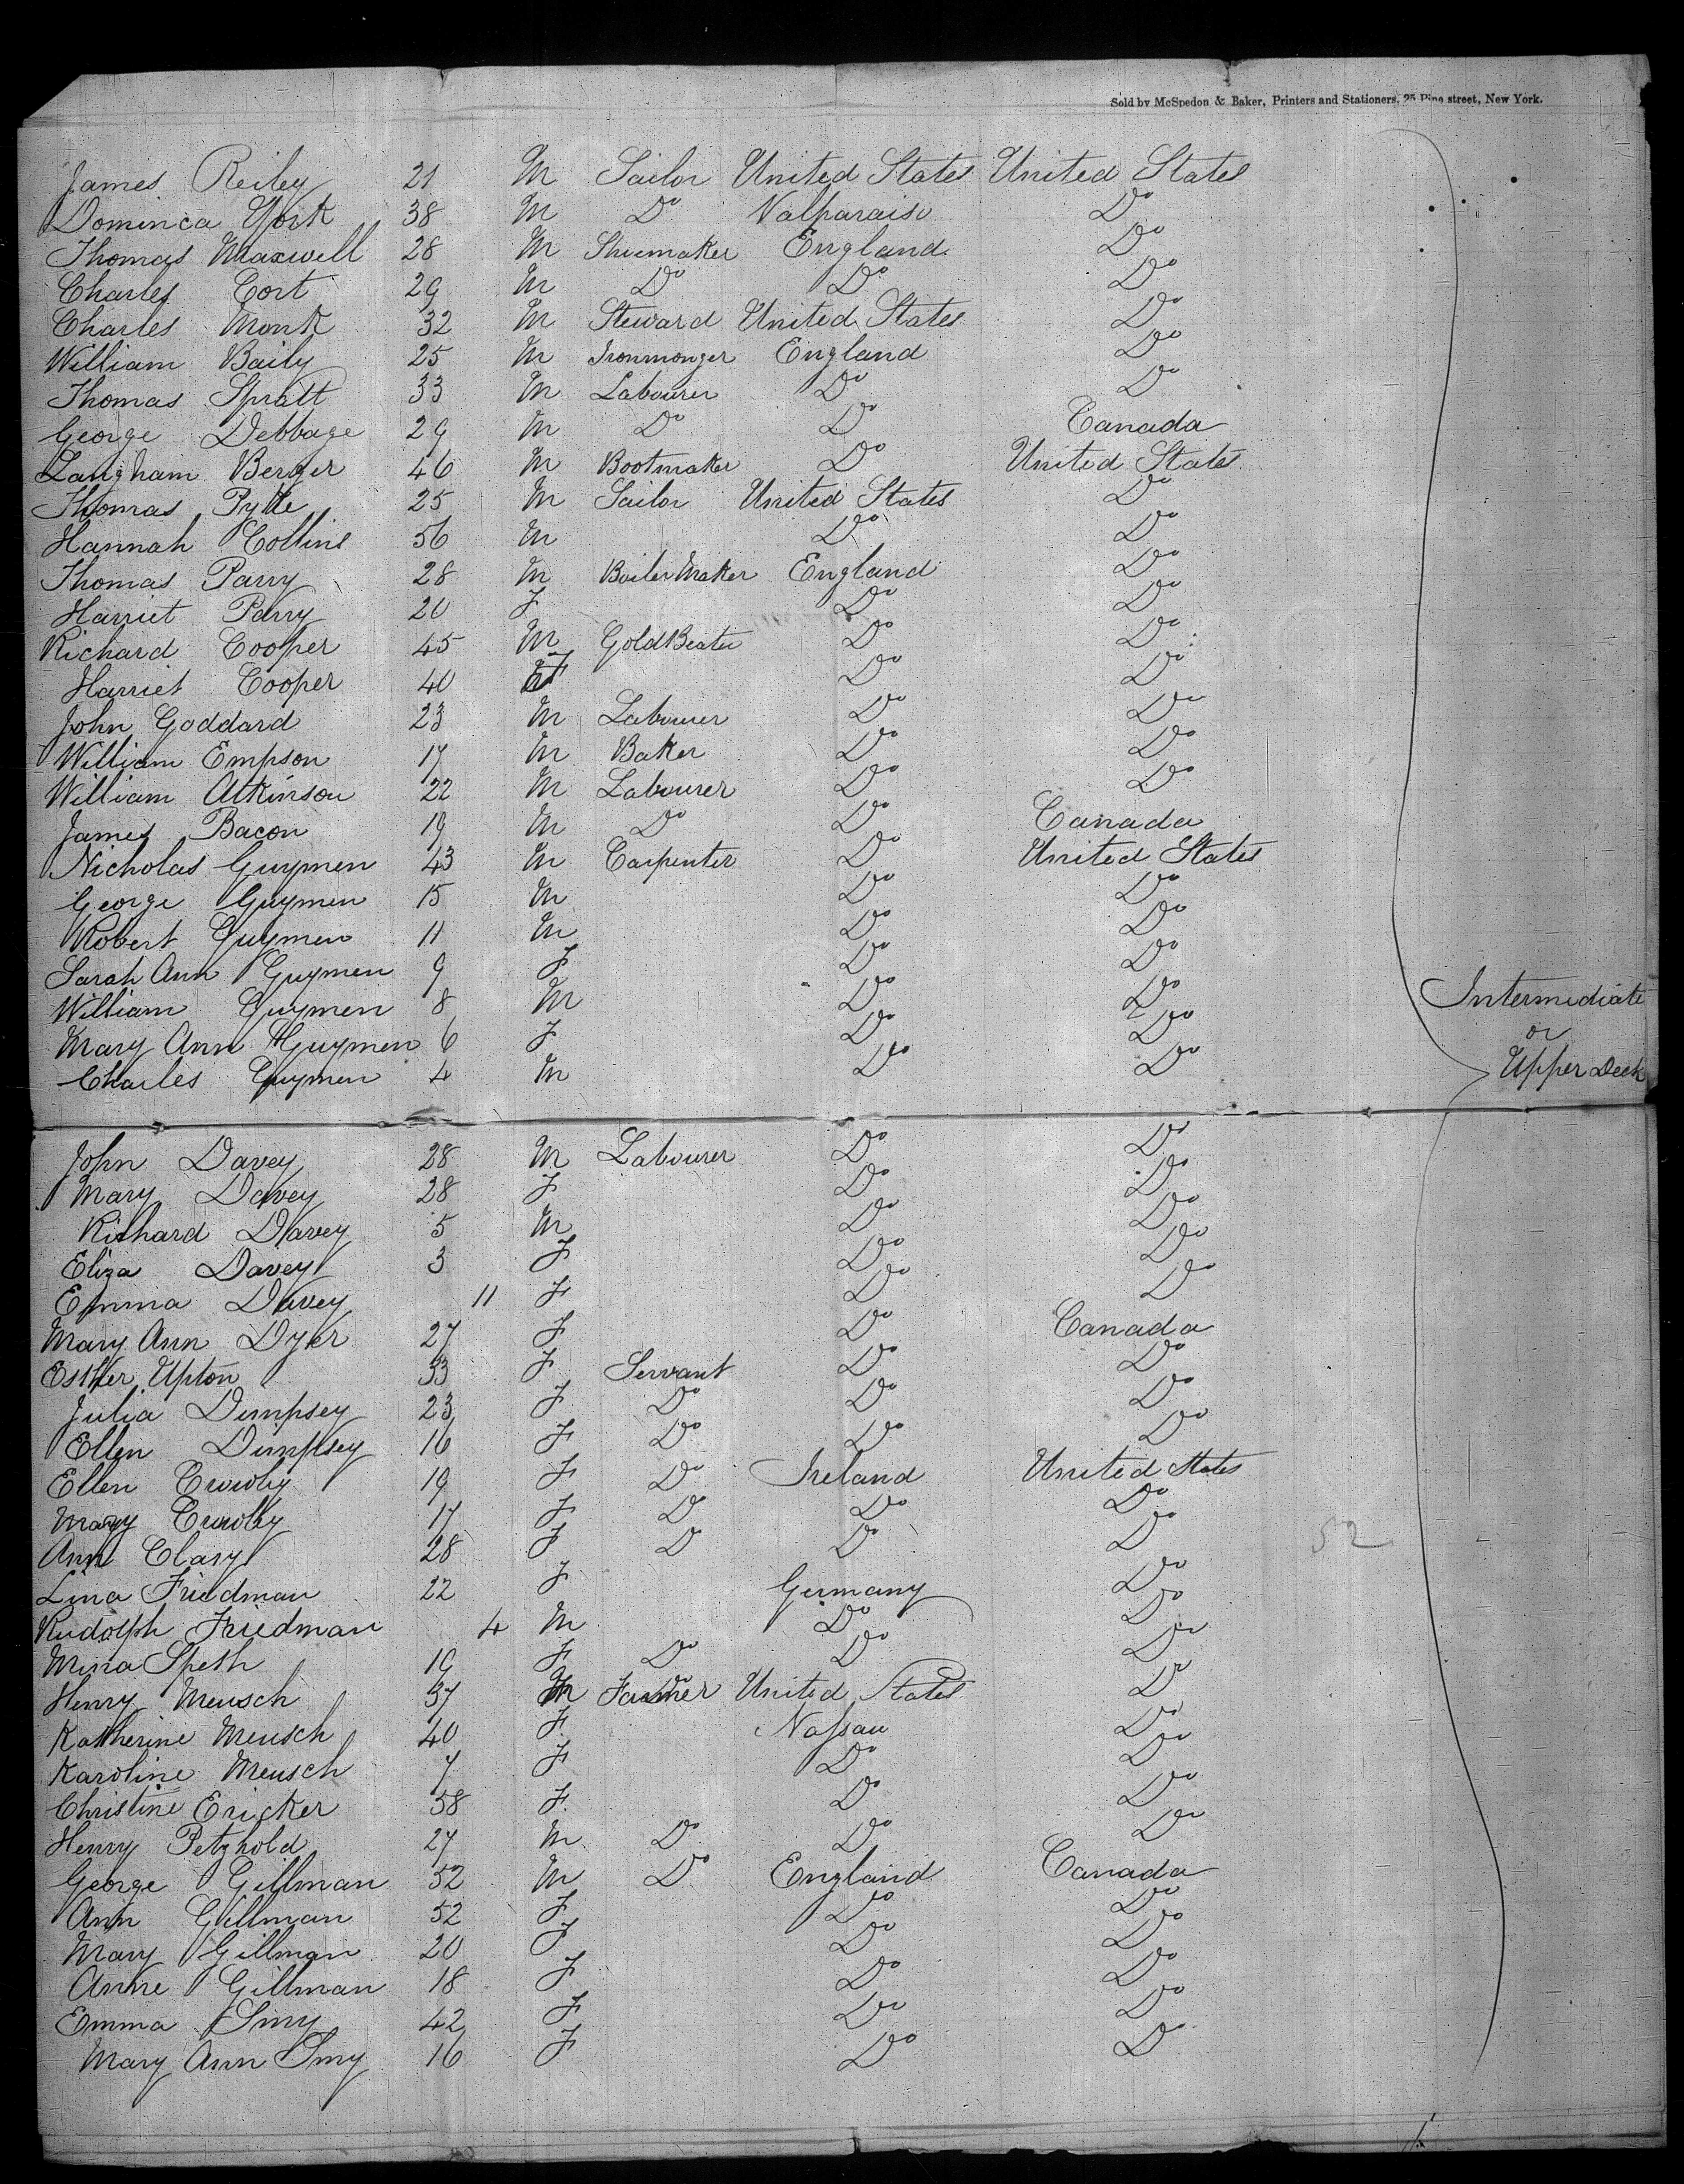 Sold by McSpedon & Baker, Printers and Stationers, 25 Pine street, New York.
James Reiley 21 M Sailor United States United States
Dominca York 38 M Do Valparaiso Do
Thomas Maxwell 28 M Shoemaker England Do
Charles Cort 29 M Do Do Do
Charles Monk 32 M Steward United States Do
William Baily 25 M Ironmonger England Do
Thomas Spratt 33 M Labourer Do Do
George Debbage 29 M Do Do Canada
Langham Berger 46 M Bootmaker Do United States
Thomas Pytte 25 M Sailor United States Do
Hannah Collins 56 M Do Do
Thomas Parry 28 M Boiler Maker England Do
Harriet Parry 20 F Do Do
Richard Cooper 45 M Gold Beater Do Do
Harriet Cooper 40 F Do Do
John Goddard 23 M Labourer Do Do
William Empson 17 M Baker Do Do
William Atkinson 22 M Labourer Do Do
James Bacon 19 M Do Do Canada
Nicholas Guymen 43 M Carpenter Do United States
George Guymen 15 M Do Do
Robert Guymen 11 M Do Do
Sarah Ann Guymen 9 F Do Do
William Guymen 8 M Do Do
Mary Ann Guymen 6 F Do Do
Charles Guymen 4 M Do Do
Intermediate
or
Upper Deck
John Davey 28 M Labourer Do Do
Mary Davey 28 F Do Do
Richard Davey 5 M Do Do
Eliza Davey 3 F Do Do
Emma Davey 11 F Do Do
Mary Ann Dyer 27 F Do Canada
Esther Upton 33 F Servant Do Do
Julia Dempsey 23 F Do Do Do
Ellen Dempsey 16 F Do Do Do
Ellen Crowley 19 F Do Ireland United States
Mary Crowley 17 F Do Do Do
Ann Clary 28 F D D Do
52
Lina Friedman 22 F Germany Do
Rudolph Friedman 4 M Do Do
Mina Speth 19 F Do Do Do
Henry Meusch 37 M Farmer United States Do
Katherine Meusch 40 F Nassau Do
Karoline Meusch 7 F Do Do
Christine Ericker 58 F. Do Do
Henry Petzhold 27 M Do Do Do
George Gillman 52 M Do England Canada
Ann Gillman 52 F Do Do
Mary Gillman 20 F Do Do
Anne Gillman 18 F Do Do
Emma Smy 42 F Do Do
Mary Ann Smy 16 F Do Do